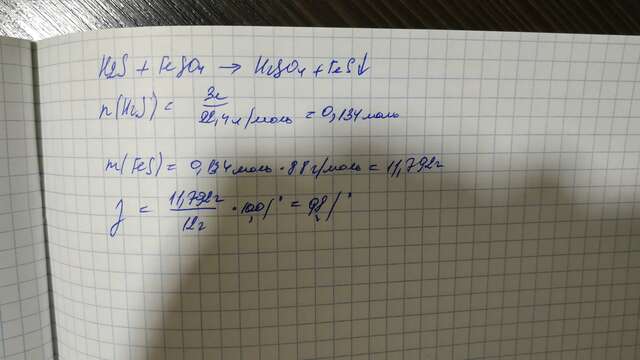 H2S + FeSO4 → H2SO4 + FeS↓
n(H2S) = 3л / 22,4 л/моль = 0,134 моль
m(FeS) = 0,134 моль · 88 г/моль = 11,792 г
= 11,792 г / 12 г · 100% = 98%